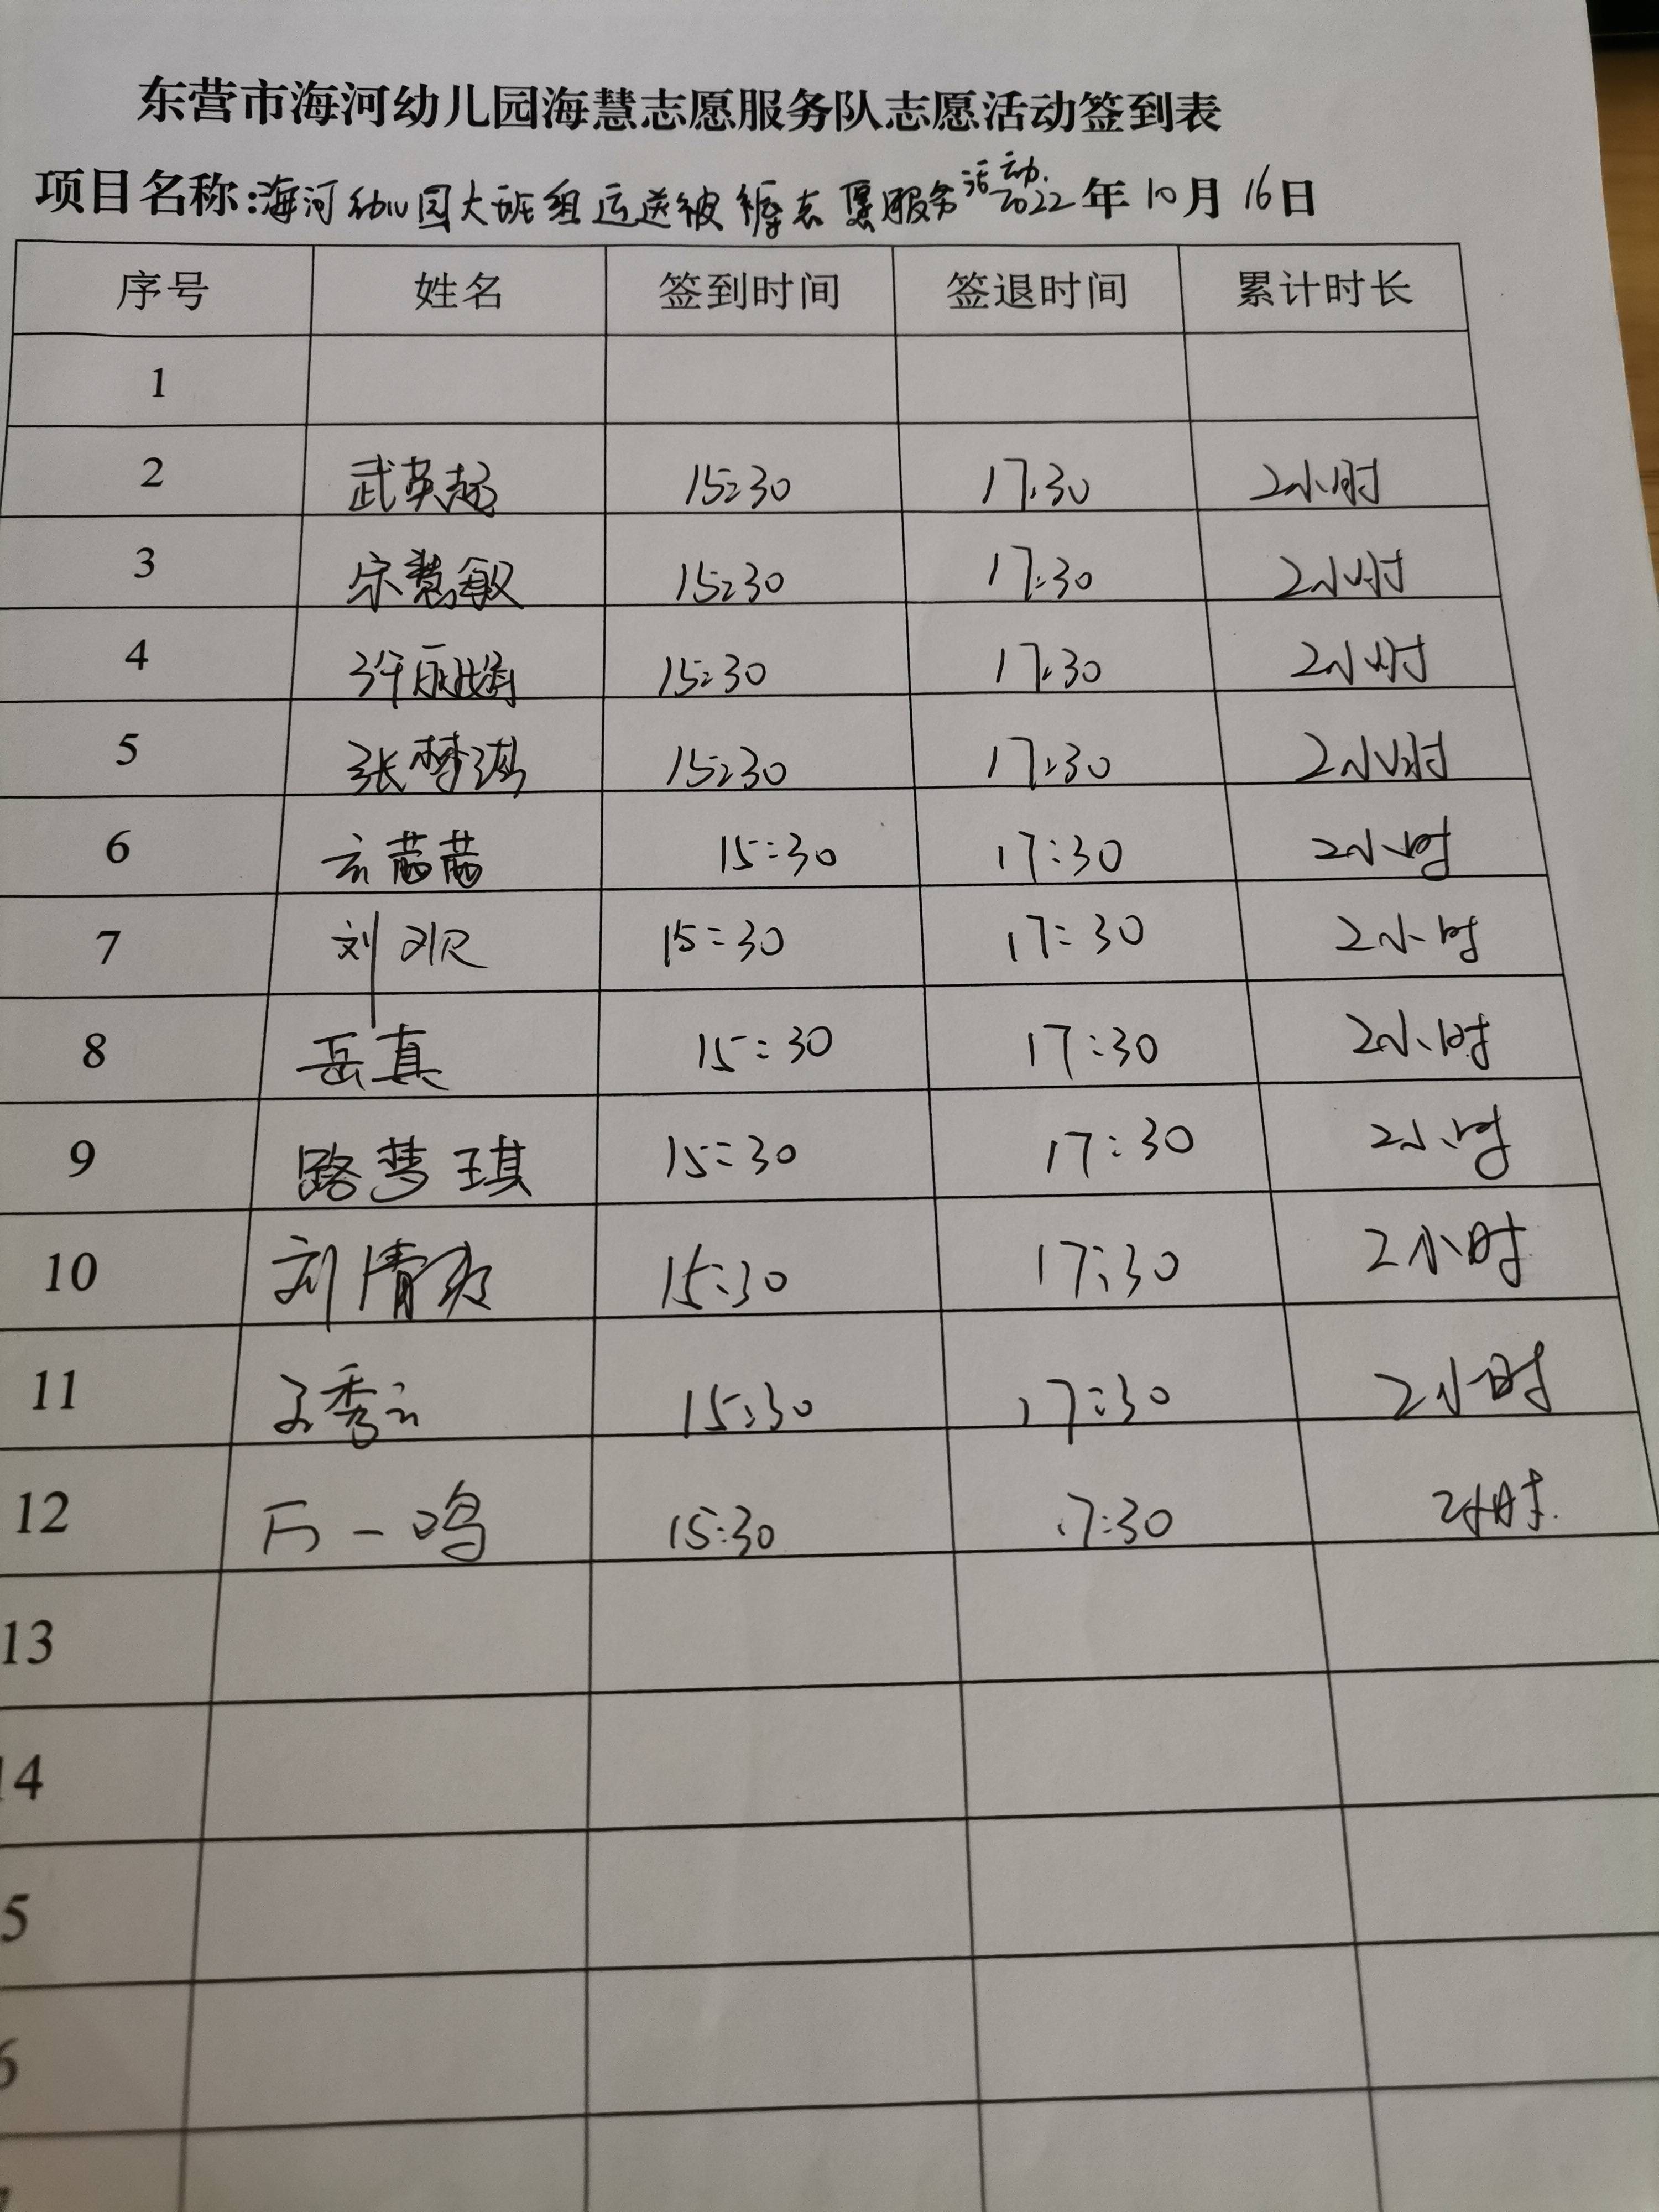 东营市海河幼儿园海慧志愿服务队志愿活动签到表
项目名称:海河幼儿园大班组运送被褥志愿服务活动.2022年10月16日
序号 姓名 签到时间 签退时间 累计时长
1
2 武英超 15:30 17:30 2小时
3 宋慧敏 15:30 17:30 2小时
4 许丽娟 15:30 17:30 2小时
5 张梦琪 15:30 17:30 2小时
6 玄茜茜 15:30 17:30 2小时
7 刘欢 15:30 17:30 2小时
8 岳真 15:30 17:30 2小时
9 路梦琪 15:30 17:30 2小时
10 刘倩 15:30 17:30 2小时
11 秀云 15:30 17:30 2小时
12 万一鸣 15:30 17:30 2小时.
13
14
5
6